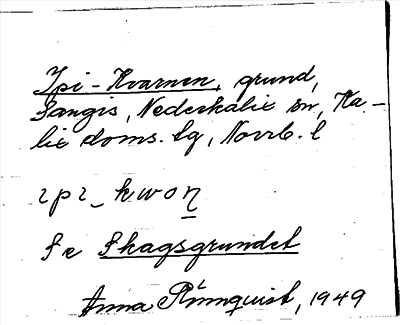 Ypi-Kvarnen, grund,
Sangis, Nederkalix sn, Ka-
lix doms. lg, Norrb. l
ɩpɩ_kwoṉ
Se Skagsgrundet
Anna Rönnquist, 1949